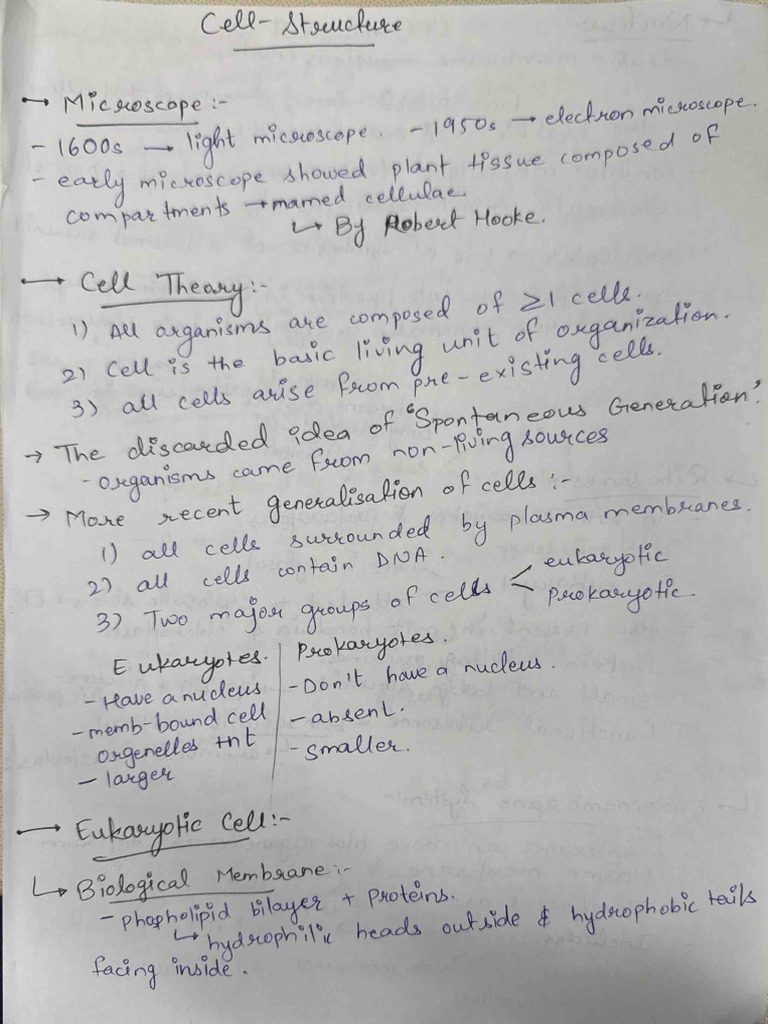 Cell-Structure
→ Microscope:-
- 1600s → light microscope. - 1950s → electron microscope.
- early microscope showed plant tissue composed of
compartments → named cellulae.
↳ By Robert Hooke.
→ Cell Theory:-
1) All organisms are composed of ≥1 cells.
2) Cell is the basic living unit of organization.
3) all cells arise from pre-existing cells.
→ The discarded idea of 'Spontaneous Generation'
- organisms came from non-living sources
→ More recent generalisation of cells :-
1) all cells surrounded by plasma membranes.
2) all cells contain DNA.
3) Two major groups of cells < eukaryotic
prokaryotic.
Eukaryotes. | Prokaryotes.
- Have a nucleus | - Don't have a nucleus.
- memb-bound cell | - absent.
orgenelles +nt | - smaller.
- larger
→ Eukaryotic Cell:-
↳ Biological Membrane:-
- phopholipid bilayer + proteins.
↳ hydrophilic heads outside & hydrophobic tails
facing inside.